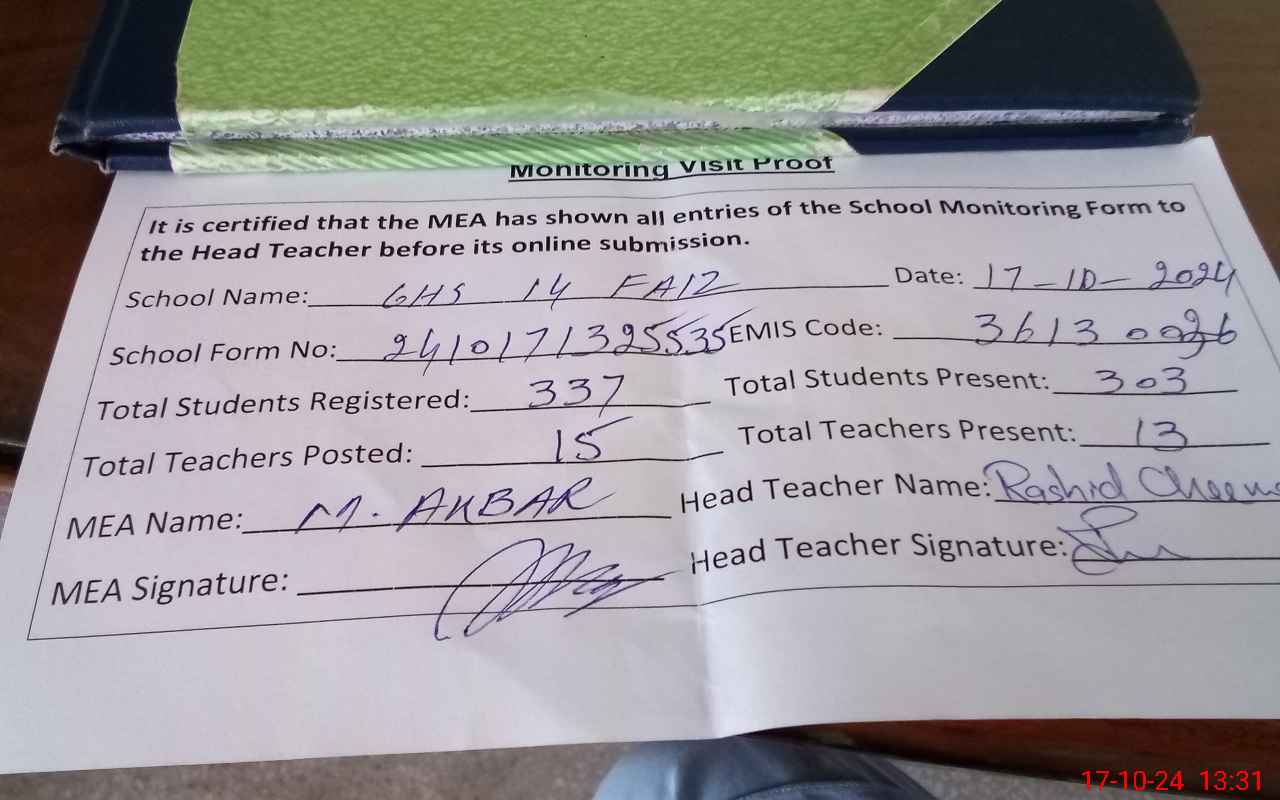 Monitoring Visit Proof
It is certified that the MEA has shown all entries of the School Monitoring Form to
the Head Teacher before its online submission.
School Name: GHS 14 FAIZ Date: 17-10-2024
School Form No: 2410171325535 EMIS Code: 36130026
Total Students Registered: 337 Total Students Present: 303
Total Teachers Posted: 15 Total Teachers Present: 13
MEA Name: M. AKBAR Head Teacher Name: Rashid Cheema
MEA Signature: Head Teacher Signature:
17-10-24 13:31